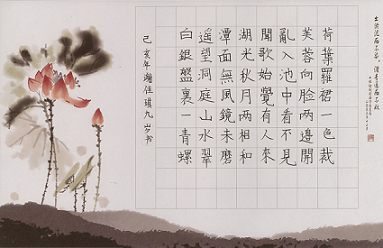 出淤泥而不染 濯清漣而不妖
荷葉羅裙一色裁
芙蓉向臉兩邊開
亂入池中看不見
聞歌始覺有人來
湖光秋月兩相和
潭面無風鏡未磨
遙望洞庭山水翠
白銀盤裏一青螺
己亥年 九岁书